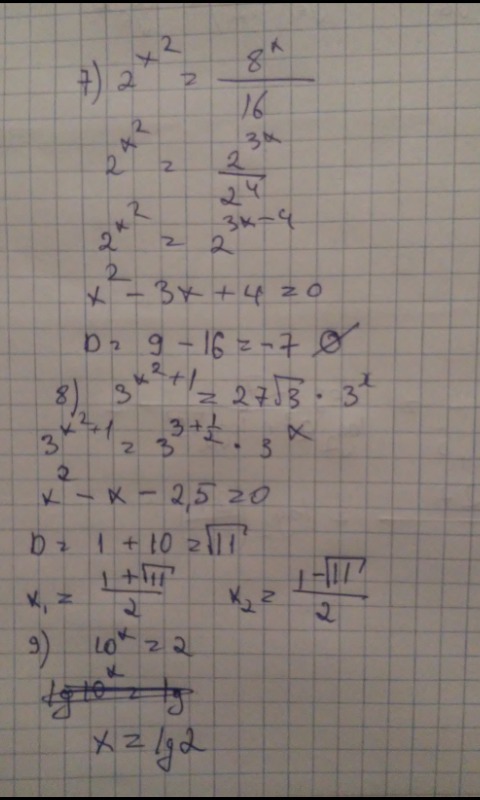 7) 2^{x^2} = 8^x / 16
2^{x^2} = 2^{3x} / 2^4
2^{x^2} = 2^{3x-4}
x^2 - 3x + 4 = 0
D = 9 - 16 = -7 ∅
8) 3^{x^2+1} = 27√3 · 3^x
3^{x^2+1} = 3^{3+1/2} · 3^x
x^2 - x - 2,5 = 0
D = 1 + 10 = √11
x₁ = (1+√11)/2 x₂ = (1-√11)/2
9) 10^x = 2
lg 10^x = lg
x = lg2